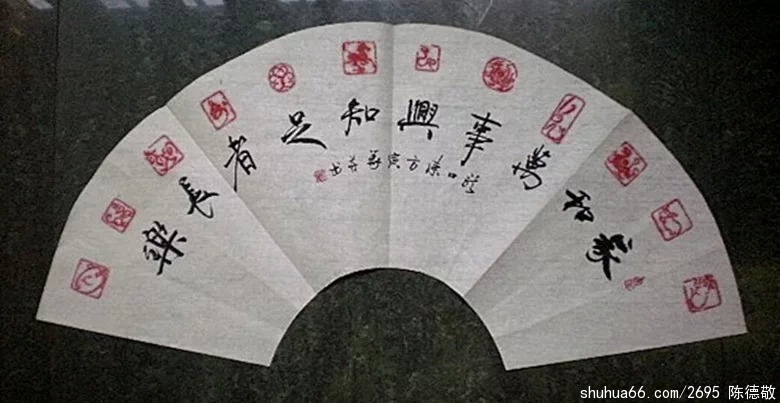 家和萬事興知足者長樂
shuhua66.com/2695 陈德敬